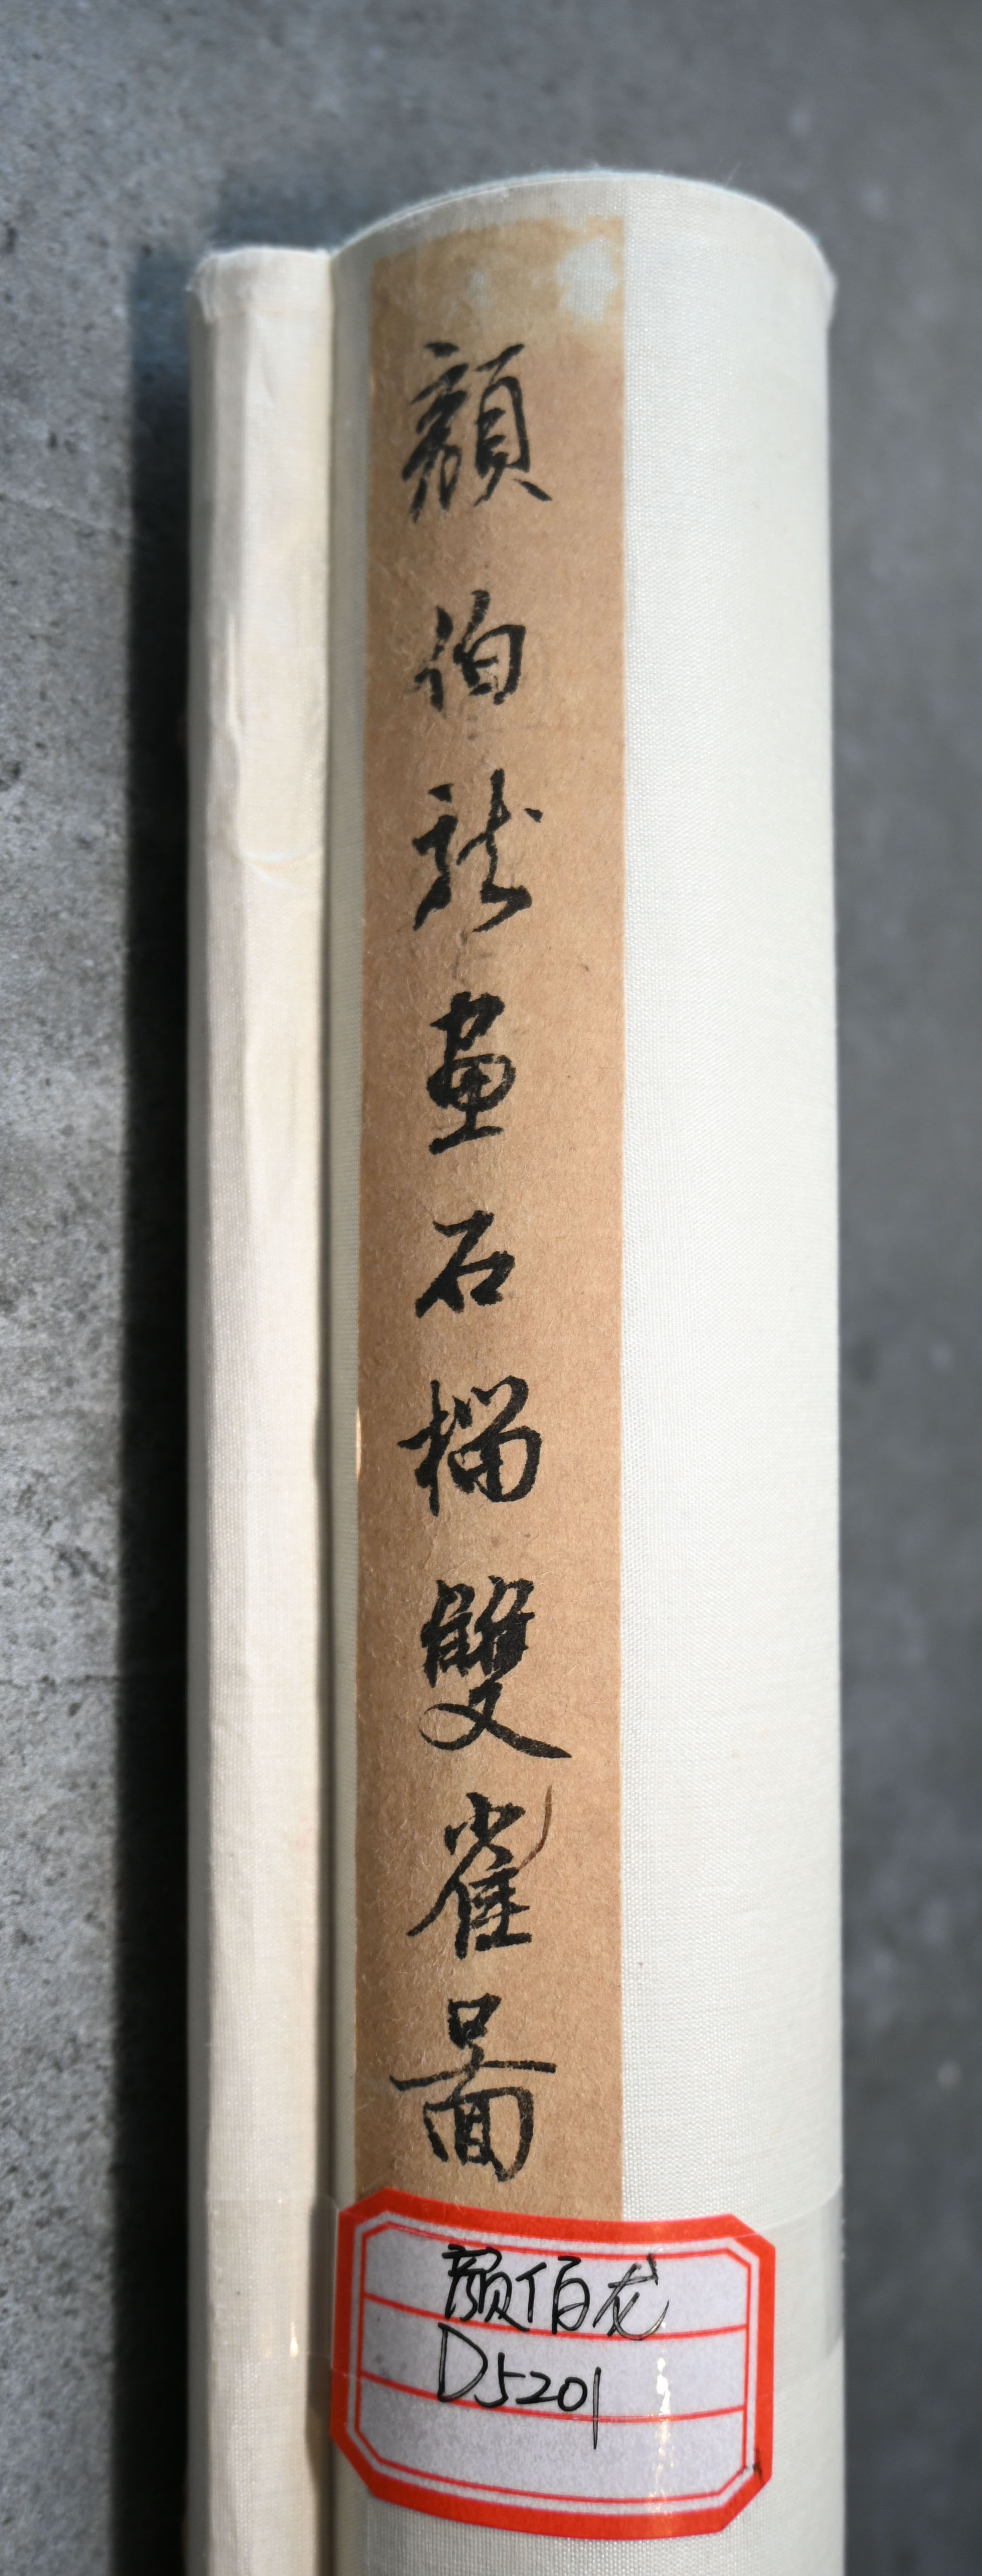 顏伯龙畫石榴雙雀啚
颜伯龙
D5201